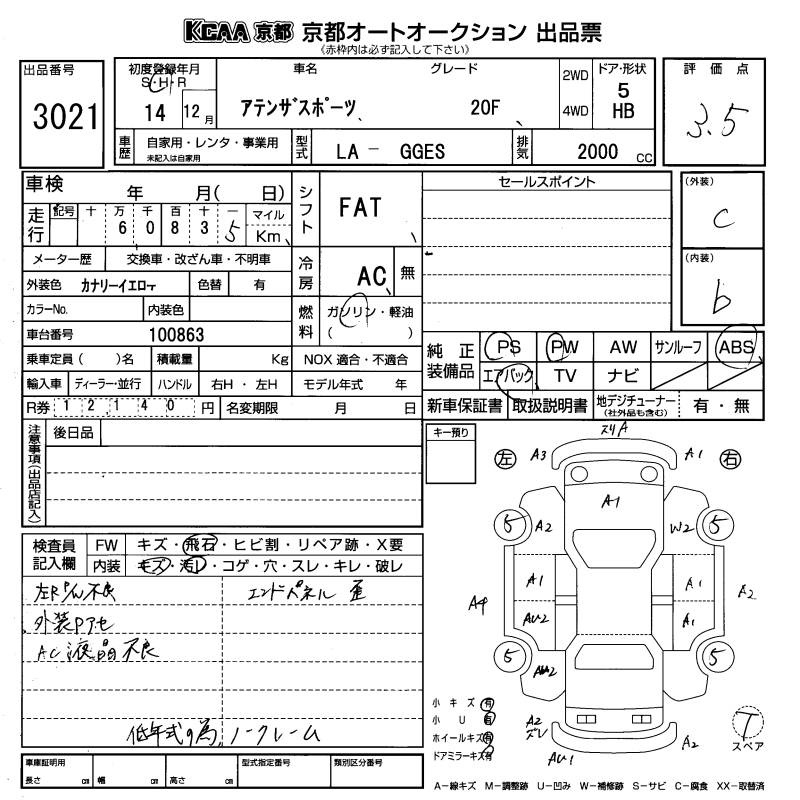 KCAA 京都 京都オートオークション 出品票
《赤枠内は必ず記入して下さい》
出品番号
3021
初度登録年月
S・H・R
14
12
月
車名
グレード
アテンザスポーツ
20F
2WD
4WD
ドア・形状
5
HB
評価点
3.5
車歴
自家用・レンタ・事業用
未記入は自家用
型式
LA - GGES
排気
2000 CC
車検
年 月( 日)
走行
記号
十 万 千 百 十 一
6 0 8 3 5
マイル
Km
シフト
FAT
セールスポイント
(外装)
C
(内装)
b
メーター歴
交換車・改ざん車・不明車
冷房
AC
無
外装色
カナリーイエロイ
色替
有
カラーNo.
内装色
燃料
ガソリン・軽油
( )
車台番号
100863
乗車定員( )名
積載量
Kg
NOX 適合・不適合
純正装備品
PS
PW
AW
サンルーフ
ABS
エアバック
TV
ナビ
輸入車
ディーラー・並行
ハンドル
右H・左H
モデル年式 年
R券
12,140 円
名変期限
月 日
新車保証書
取扱説明書
地デジチューナー
(社外品も含む)
有・無
注意事項(出品店記入)
後日品
キー預り
左
右
スリA
A3
A1
A1
5
A2
W2
5
A1
A1
A4
A2
AU2
A1
5
5
A2
ズレ
AU1
A2
T
スペア
検査員記入欄
FW
キズ・飛石・ヒビ割・リペア跡・X要
内装
キズ・汚レ・コゲ・穴・スレ・キレ・破レ
エンドパネル 歪
外装Pアセ
AC液晶不良
低年式の為、ノークレーム
小キズ 有
小U 有
ホイールキズ 有
ドアミラーキズ 有
車庫証明用
長さ cm
幅 cm
高さ cm
型式指定番号
類別区分番号
A−線キズ M−調整跡 U−凹み W−補修跡 S−サビ C−腐食 XX−取替済